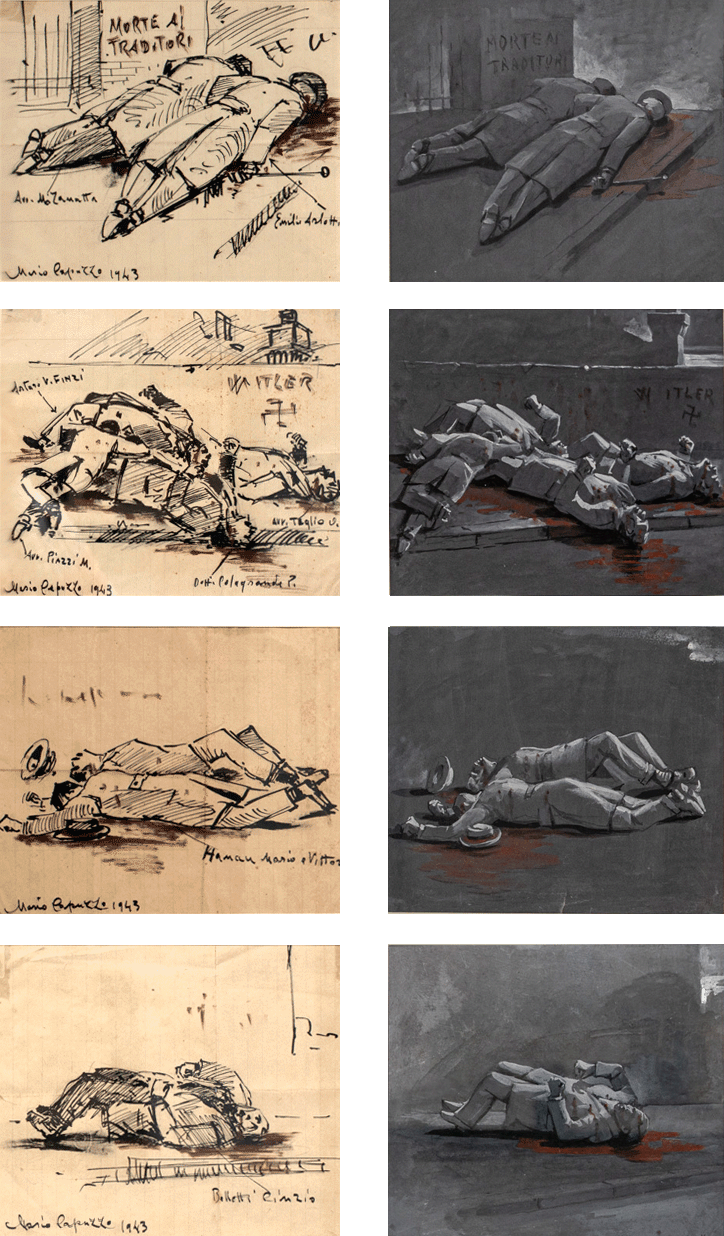 MORTE AI
TRADITORI
Avv. M. Zanatta
Emilio Arlotti
Mario Capuzzo 1943
MORTE AI
TRADITORI
Arturo V. FINZI
W ITLER
AVV. TEGLIO U.
Avv. PIAZZI M.
Dott. Colagrande P.
Mario Capuzzo 1943
W ITLER
Hanau Mario e Vittor
Mario Capuzzo 1943
Belletti Cinzio
Mario Capuzzo 1943